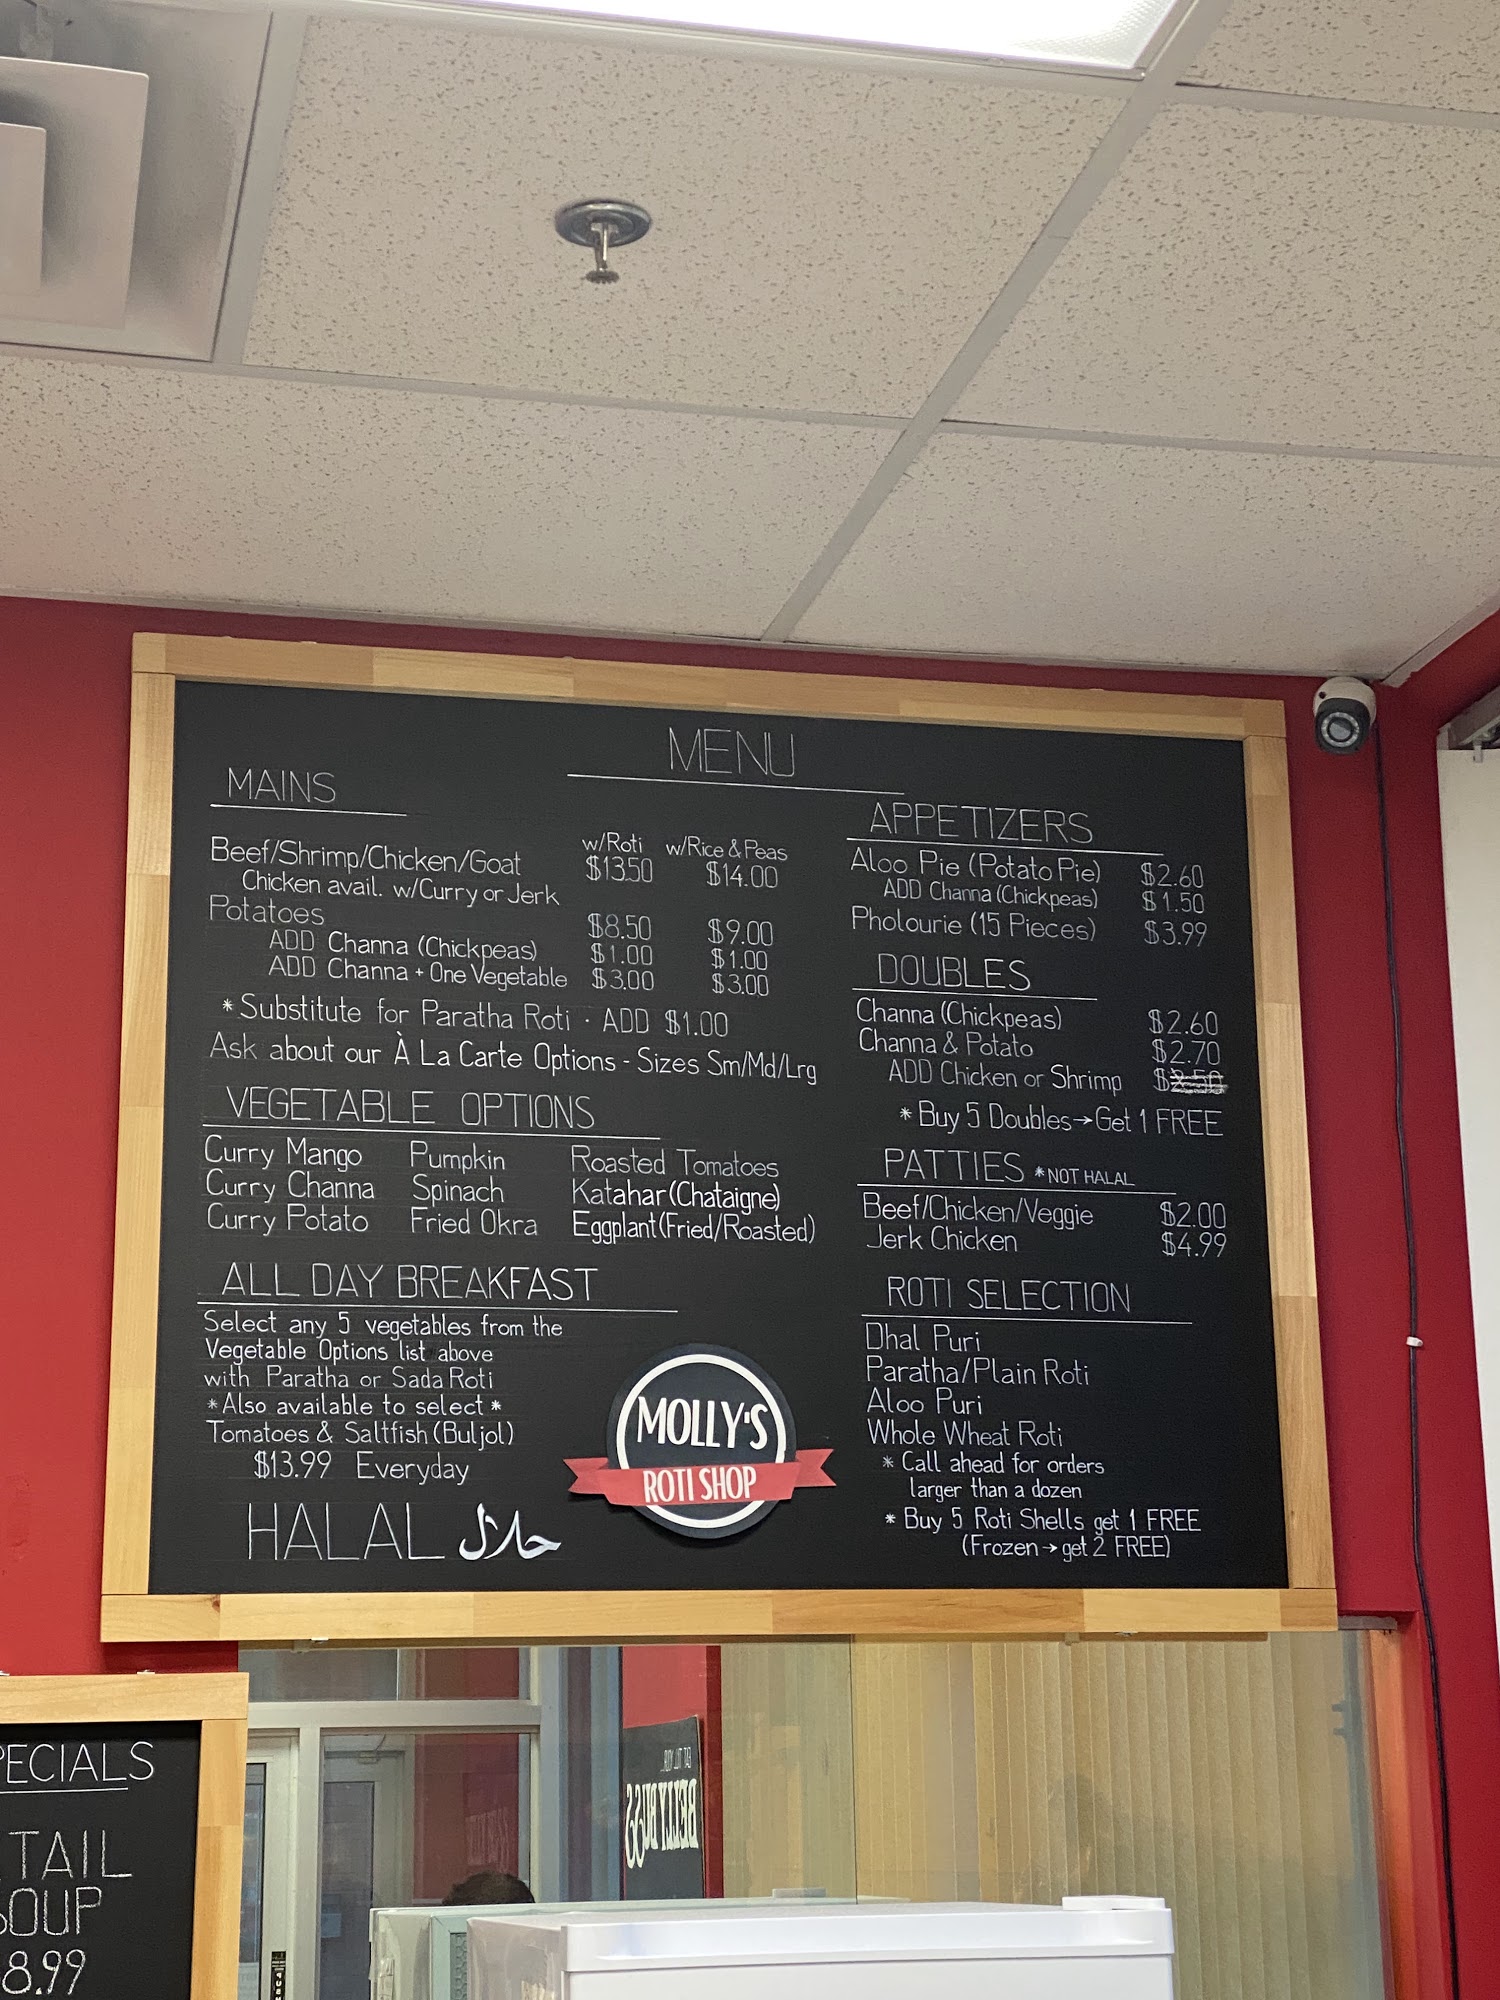 MENU
MAINS
w/Roti w/Rice & Peas
Beef/Shrimp/Chicken/Goat $13.50 $14.00
Chicken avail. w/Curry or Jerk
Potatoes $8.50 $9.00
ADD Channa (Chickpeas) $1.00 $1.00
ADD Channa + One Vegetable $3.00 $3.00
* Substitute for Paratha Roti · ADD $1.00
Ask about our À La Carte Options - Sizes Sm/Md/Lrg
VEGETABLE OPTIONS
Curry Mango Pumpkin Roasted Tomatoes
Curry Channa Spinach Katahar (Chataigne)
Curry Potato Fried Okra Eggplant (Fried/Roasted)
ALL DAY BREAKFAST
Select any 5 vegetables from the
Vegetable Options list above
with Paratha or Sada Roti
* Also available to select *
Tomatoes & Saltfish (Buljol)
$13.99 Everyday
HALAL حلال
MOLLY'S
ROTI SHOP
APPETIZERS
Aloo Pie (Potato Pie) $2.60
ADD Channa (Chickpeas) $1.50
Pholourie (15 Pieces) $3.99
DOUBLES
Channa (Chickpeas) $2.60
Channa & Potato $2.70
ADD Chicken or Shrimp $
* Buy 5 Doubles → Get 1 FREE
PATTIES * NOT HALAL
Beef/Chicken/Veggie $2.00
Jerk Chicken $4.99
ROTI SELECTION
Dhal Puri
Paratha/Plain Roti
Aloo Puri
Whole Wheat Roti
* Call ahead for orders
larger than a dozen
* Buy 5 Roti Shells get 1 FREE
(Frozen → get 2 FREE)
PECIALS
TAIL
SOUP
8.99
BELLY BUSS